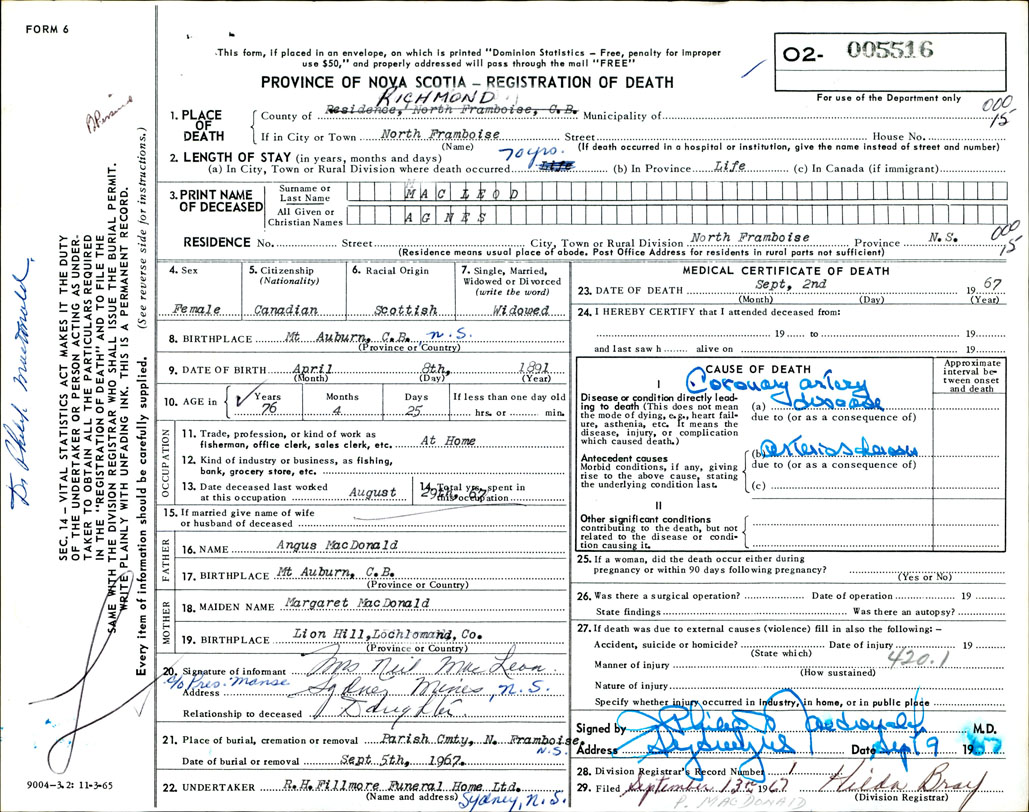 FORM 6
This form, if placed in an envelope, on which is printed "Dominion Statistics – Free, penalty for improper
use $50," and properly addressed will pass through the mail "FREE"
O2- 005516
For use of the Department only
PROVINCE OF NOVA SCOTIA – REGISTRATION OF DEATH
RICHMOND
1. PLACE OF DEATH
County of Residence, North Framboise, C.B. Municipality of
000
15
If in City or Town North Framboise Street House No.
(Name) (If death occurred in a hospital or institution, give the name instead of street and number)
2. LENGTH OF STAY (in years, months and days) 70 yrs.
(a) In City, Town or Rural Division where death occurred Life (b) In Province Life (c) In Canada (if immigrant)
3. PRINT NAME OF DECEASED
Surname or Last Name MAC LEOD
All Given or Christian Names AGNES
RESIDENCE No. Street City, Town or Rural Division North Framboise Province N.S.
000
15
(Residence means usual place of abode. Post Office Address for residents in rural parts not sufficient)
4. Sex
Female
5. Citizenship
(Nationality)
Canadian
6. Racial Origin
Scottish
7. Single, Married,
Widowed or Divorced
(write the word)
Widowed
8. BIRTHPLACE Mt Auburn, C.B. N.S.
(Province or Country)
9. DATE OF BIRTH April 8th, 1891
(Month) (Day) (Year)
10. AGE in Years Months Days If less than one day old
76 4 25 hrs. or min.
OCCUPATION
11. Trade, profession, or kind of work as
fisherman, office clerk, sales clerk, etc. At Home
12. Kind of industry or business, as fishing,
bank, grocery store, etc.
13. Date deceased last worked
at this occupation August 29th, 67
14. Total yrs. spent in
this occupation
15. If married give name of wife
or husband of deceased
FATHER
16. NAME Angus MacDonald
17. BIRTHPLACE Mt Auburn, C.B.
(Province or Country)
MOTHER
18. MAIDEN NAME Margaret MacDonald
19. BIRTHPLACE Lion Hill, Lochlomand, Co.
(Province or Country)
20. Signature of informant Mrs Neil Mac Lean
c/o Pres. Manse
Address Sydney Mines, N.S.
Relationship to deceased Daughter
21. Place of burial, cremation or removal Parish Cmty, N. Framboise,
N.S.
Date of burial or removal Sept. 5th, 1967.
22. UNDERTAKER R.H.Fillmore Funeral Home Ltd.
(Name and address) Sydney, N.S.
MEDICAL CERTIFICATE OF DEATH
23. DATE OF DEATH Sept, 2nd 19 67
(Month) (Day) (Year)
24. I HEREBY CERTIFY that I attended deceased from:
19 to 19
and last saw h alive on 19
CAUSE OF DEATH
Approximate
interval be-
tween onset
and death
I
Disease or condition directly lead-
ing to death (This does not mean
the mode of dying, e.g., heart fail-
ure, asthenia, etc. It means the
disease, injury, or complication
which caused death.)
(a) Coronary artery
disease
due to (or as a consequence of)
Antecedent causes
Morbid conditions, if any, giving
rise to the above cause, stating
the underlying condition last.
(b) arteriosclerosis
due to (or as a consequence of)
(c)
II
Other significant conditions
contributing to the death, but not
related to the disease or condi-
tion causing it.
25. If a woman, did the death occur either during
pregnancy or within 90 days following pregnancy?
(Yes or No)
26. Was there a surgical operation? Date of operation 19
State findings Was there an autopsy?
27. If death was due to external causes (violence) fill in also the following: –
Accident, suicide or homicide? Date of injury 19
(State which) 420.1
Manner of injury
(How sustained)
Nature of injury
Specify whether injury occurred in Industry, in home, or in public place
Signed by M.D.
Address Date Sep 9 19 67
28. Division Registrar's Record Number 1
29. Filed September 13th 1967 Hilda Bray
(Division Registrar)
P. MACDONALD
9004-3.2: 11-3-65
SEC. 14 – VITAL STATISTICS ACT MAKES IT THE DUTY
OF THE UNDERTAKER OR PERSON ACTING AS UNDER-
TAKER TO OBTAIN ALL THE PARTICULARS REQUIRED
IN THE "REGISTRATION OF DEATH" AND TO FILE THE
SAME WITH THE DIVISION REGISTRAR WHO SHALL ISSUE THE BURIAL PERMIT.
WRITE PLAINLY WITH UNFADING INK. THIS IS A PERMANENT RECORD.
Every item of information should be carefully supplied. (See reverse side for instructions.)